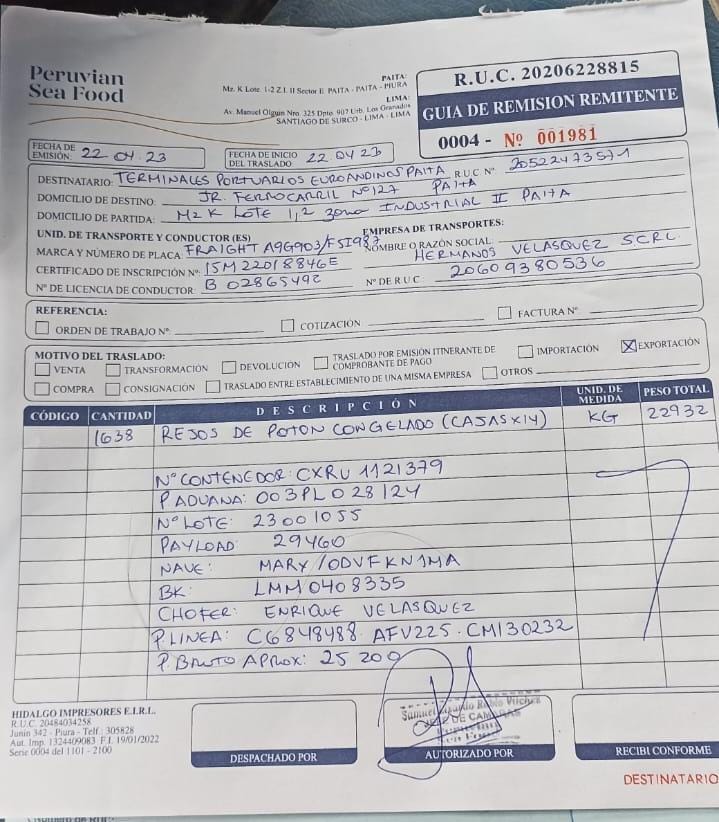 Peruvian
Sea Food
PAITA:
Mz. K Lote. 1-2 Z.I. II Sector E PAITA - PAITA - PIURA
LIMA:
Av. Manuel Olguin Nro. 325 Dpto. 907 Urb. Los Granados
SANTIAGO DE SURCO - LIMA - LIMA
R.U.C. 20206228815
GUIA DE REMISION REMITENTE
0004 - Nº 001981
FECHA DE EMISIÓN: 22 04 23
FECHA DE INICIO DEL TRASLADO 22 04 23
DESTINATARIO: TERMINALES PORTUARIOS EUROANDINOS PAITA R.U.C Nº 20522473571
DOMICILIO DE DESTINO: JR. FERROCARRIL Nº127 PAITA
DOMICILIO DE PARTIDA: MZ K LOTE 1,2 zona INDUSTRIAL II PAITA
UNID. DE TRANSPORTE Y CONDUCTOR (ES) EMPRESA DE TRANSPORTES:
MARCA Y NÚMERO DE PLACA: FRAIGHT A9G903/FSI987 NOMBRE O RAZÓN SOCIAL: HERMANOS VELASQUEZ SCRL.
CERTIFICADO DE INSCRIPCIÓN Nº: 15M22018846E
Nº DE LICENCIA DE CONDUCTOR: B 02865492 Nº DE R.U.C. 20609380536
REFERENCIA:
ORDEN DE TRABAJO Nº COTIZACIÓN FACTURA Nº
MOTIVO DEL TRASLADO:
VENTA TRANSFORMACIÓN DEVOLUCIÓN TRASLADO POR EMISIÓN ITINERANTE DE COMPROBANTE DE PAGO IMPORTACIÓN X EXPORTACIÓN
COMPRA CONSIGNACIÓN TRASLADO ENTRE ESTABLECIMIENTO DE UNA MISMA EMPRESA OTROS
CÓDIGO CANTIDAD DESCRIPCIÓN UNID. DE MEDIDA PESO TOTAL
1638 REJOS DE POTON CONGELADO (CAJASX14) KG 22932
Nº CONTENEDOR: CXRU 1121379
PADUANA: 003PL028124
Nº LOTE: 23001055
PAYLOAD: 29460
NAVE: MARX /ODVFKN1MA
BK: LMM0408335
CHOFER: ENRIQUE VELASQUEZ
P.LINEA: C6848488. AFV225. CM130232
P. BRUTO APROX: 25 200
HIDALGO IMPRESORES E.I.R.L.
R.U.C. 20484034258
Junin 342 - Piura - Telf.: 305828
Aut. Imp. 1324409083 F.I. 19/01/2022
Serie 0004 del 1101 - 2100
DESPACHADO POR
Samuel
DE
AUTORIZADO POR
RECIBI CONFORME
DESTINATARIO